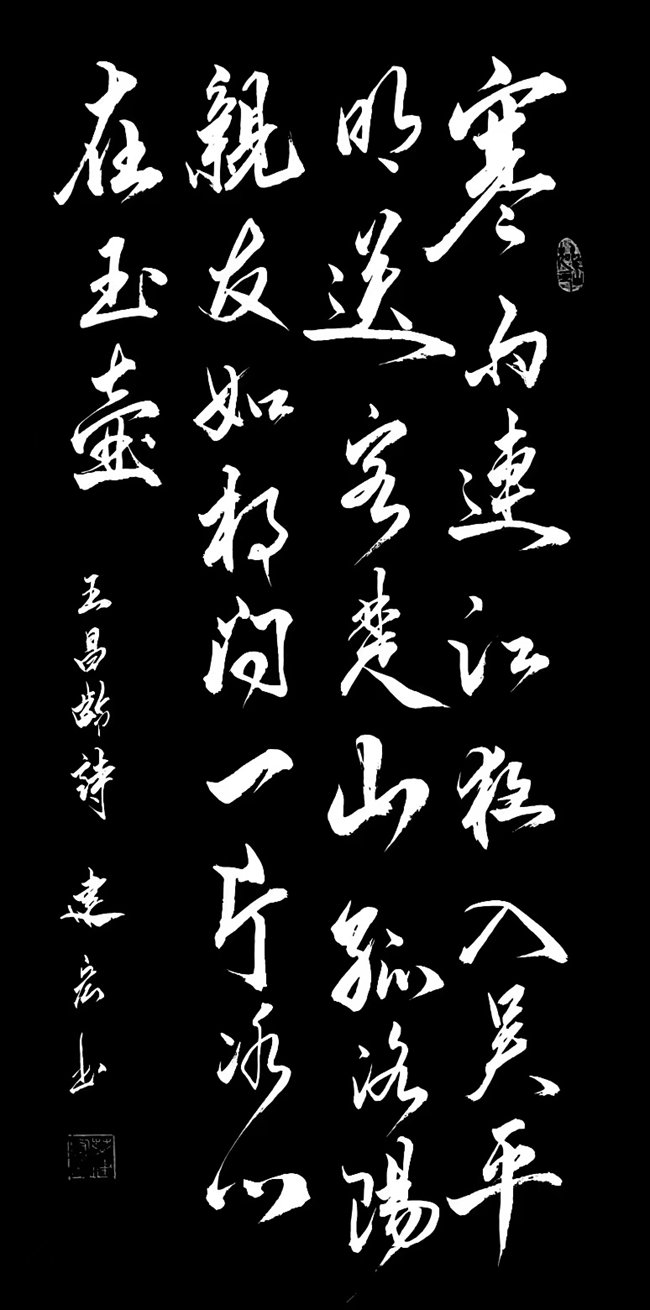 寒雨連江夜入吴平
明送客楚山孤洛陽
親友如相問一片冰心
在玉壺
王昌齡詩 建宏书